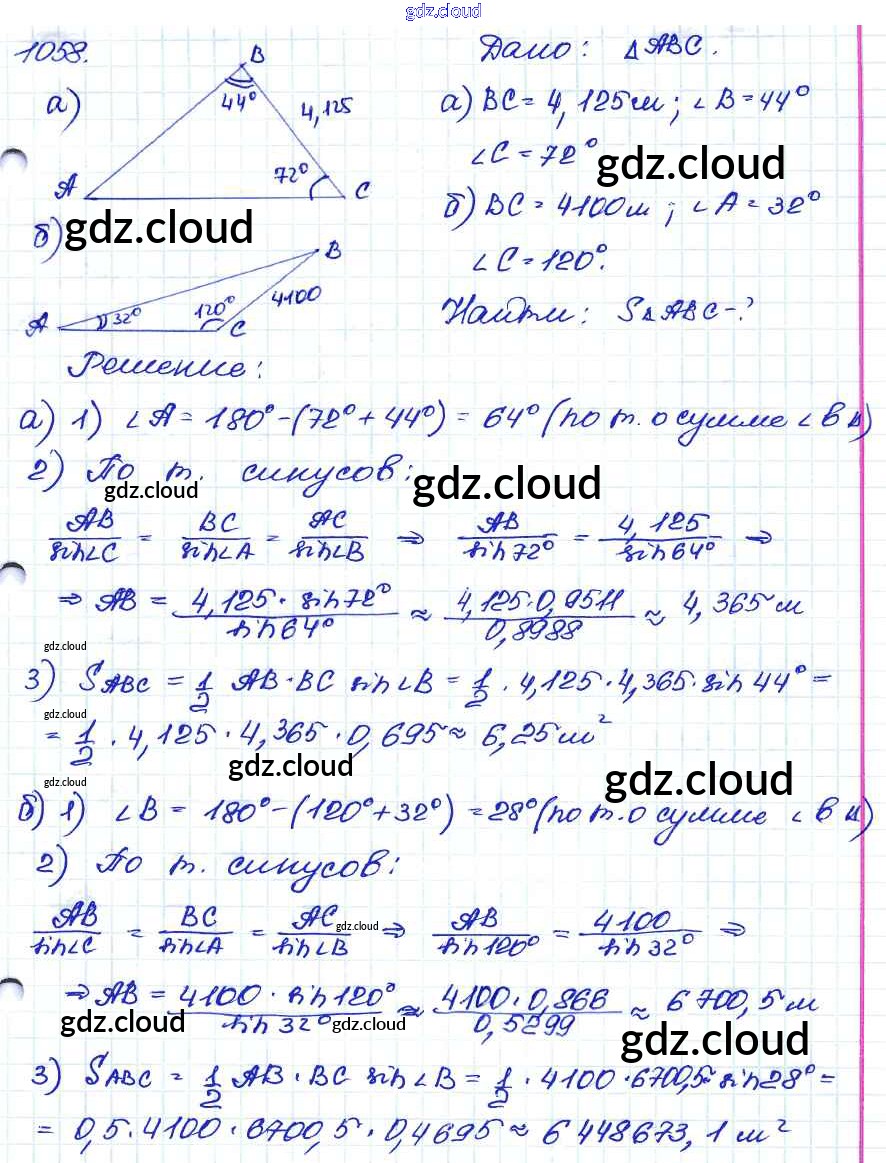 gdz.cloud
1058.
а)
B
44°
4,125
72°
A
C
Дано: △ABC.
а) BC = 4,125 м; ∠B = 44°
∠C = 72°
gdz.cloud
б) BC = 4100 м; ∠A = 32°
∠C = 120°.
Найти: S△ABC - ?
б)
gdz.cloud
B
4100
120°
A
32°
C
Решение:
а) 1) ∠A = 180° - (72° + 44°) = 64° (по т. о сумме ∠ в △)
2) По т. синусов:
gdz.cloud
gdz.cloud
AB/sin∠C = BC/sin∠A = AC/sin∠B ⇒ AB/sin72° = 4,125/sin64° ⇒
⇒ AB = 4,125 · sin72°/sin64° ≈ 4,125·0,9511/0,8988 ≈ 4,365 м
gdz.cloud
3) SABC = 1/2 AB · BC sin∠B = 1/2 · 4,125 · 4,365 · sin44° =
gdz.cloud
= 1/2 · 4,125 · 4,365 · 0,695 ≈ 6,25 м²
gdz.cloud
gdz.cloud
gdz.cloud
б) 1) ∠B = 180° - (120° + 32°) = 28° (по т. о сумме ∠ в △)
2) По т. синусов:
AB/sin∠C = BC/sin∠A = AC/sin∠B ⇒ AB/sin120° = 4100/sin32° ⇒
gdz.cloud
⇒ AB = 4100 · sin120°/sin32° ≈ 4100·0,866/0,5299 ≈ 6700,5 м
gdz.cloud
gdz.cloud
gdz.cloud
3) SABC = 1/2 AB · BC sin∠B = 1/2 · 4100 · 6700,5 · sin28° =
= 0,5 · 4100 · 6700,5 · 0,4695 ≈ 6448673,1 м²